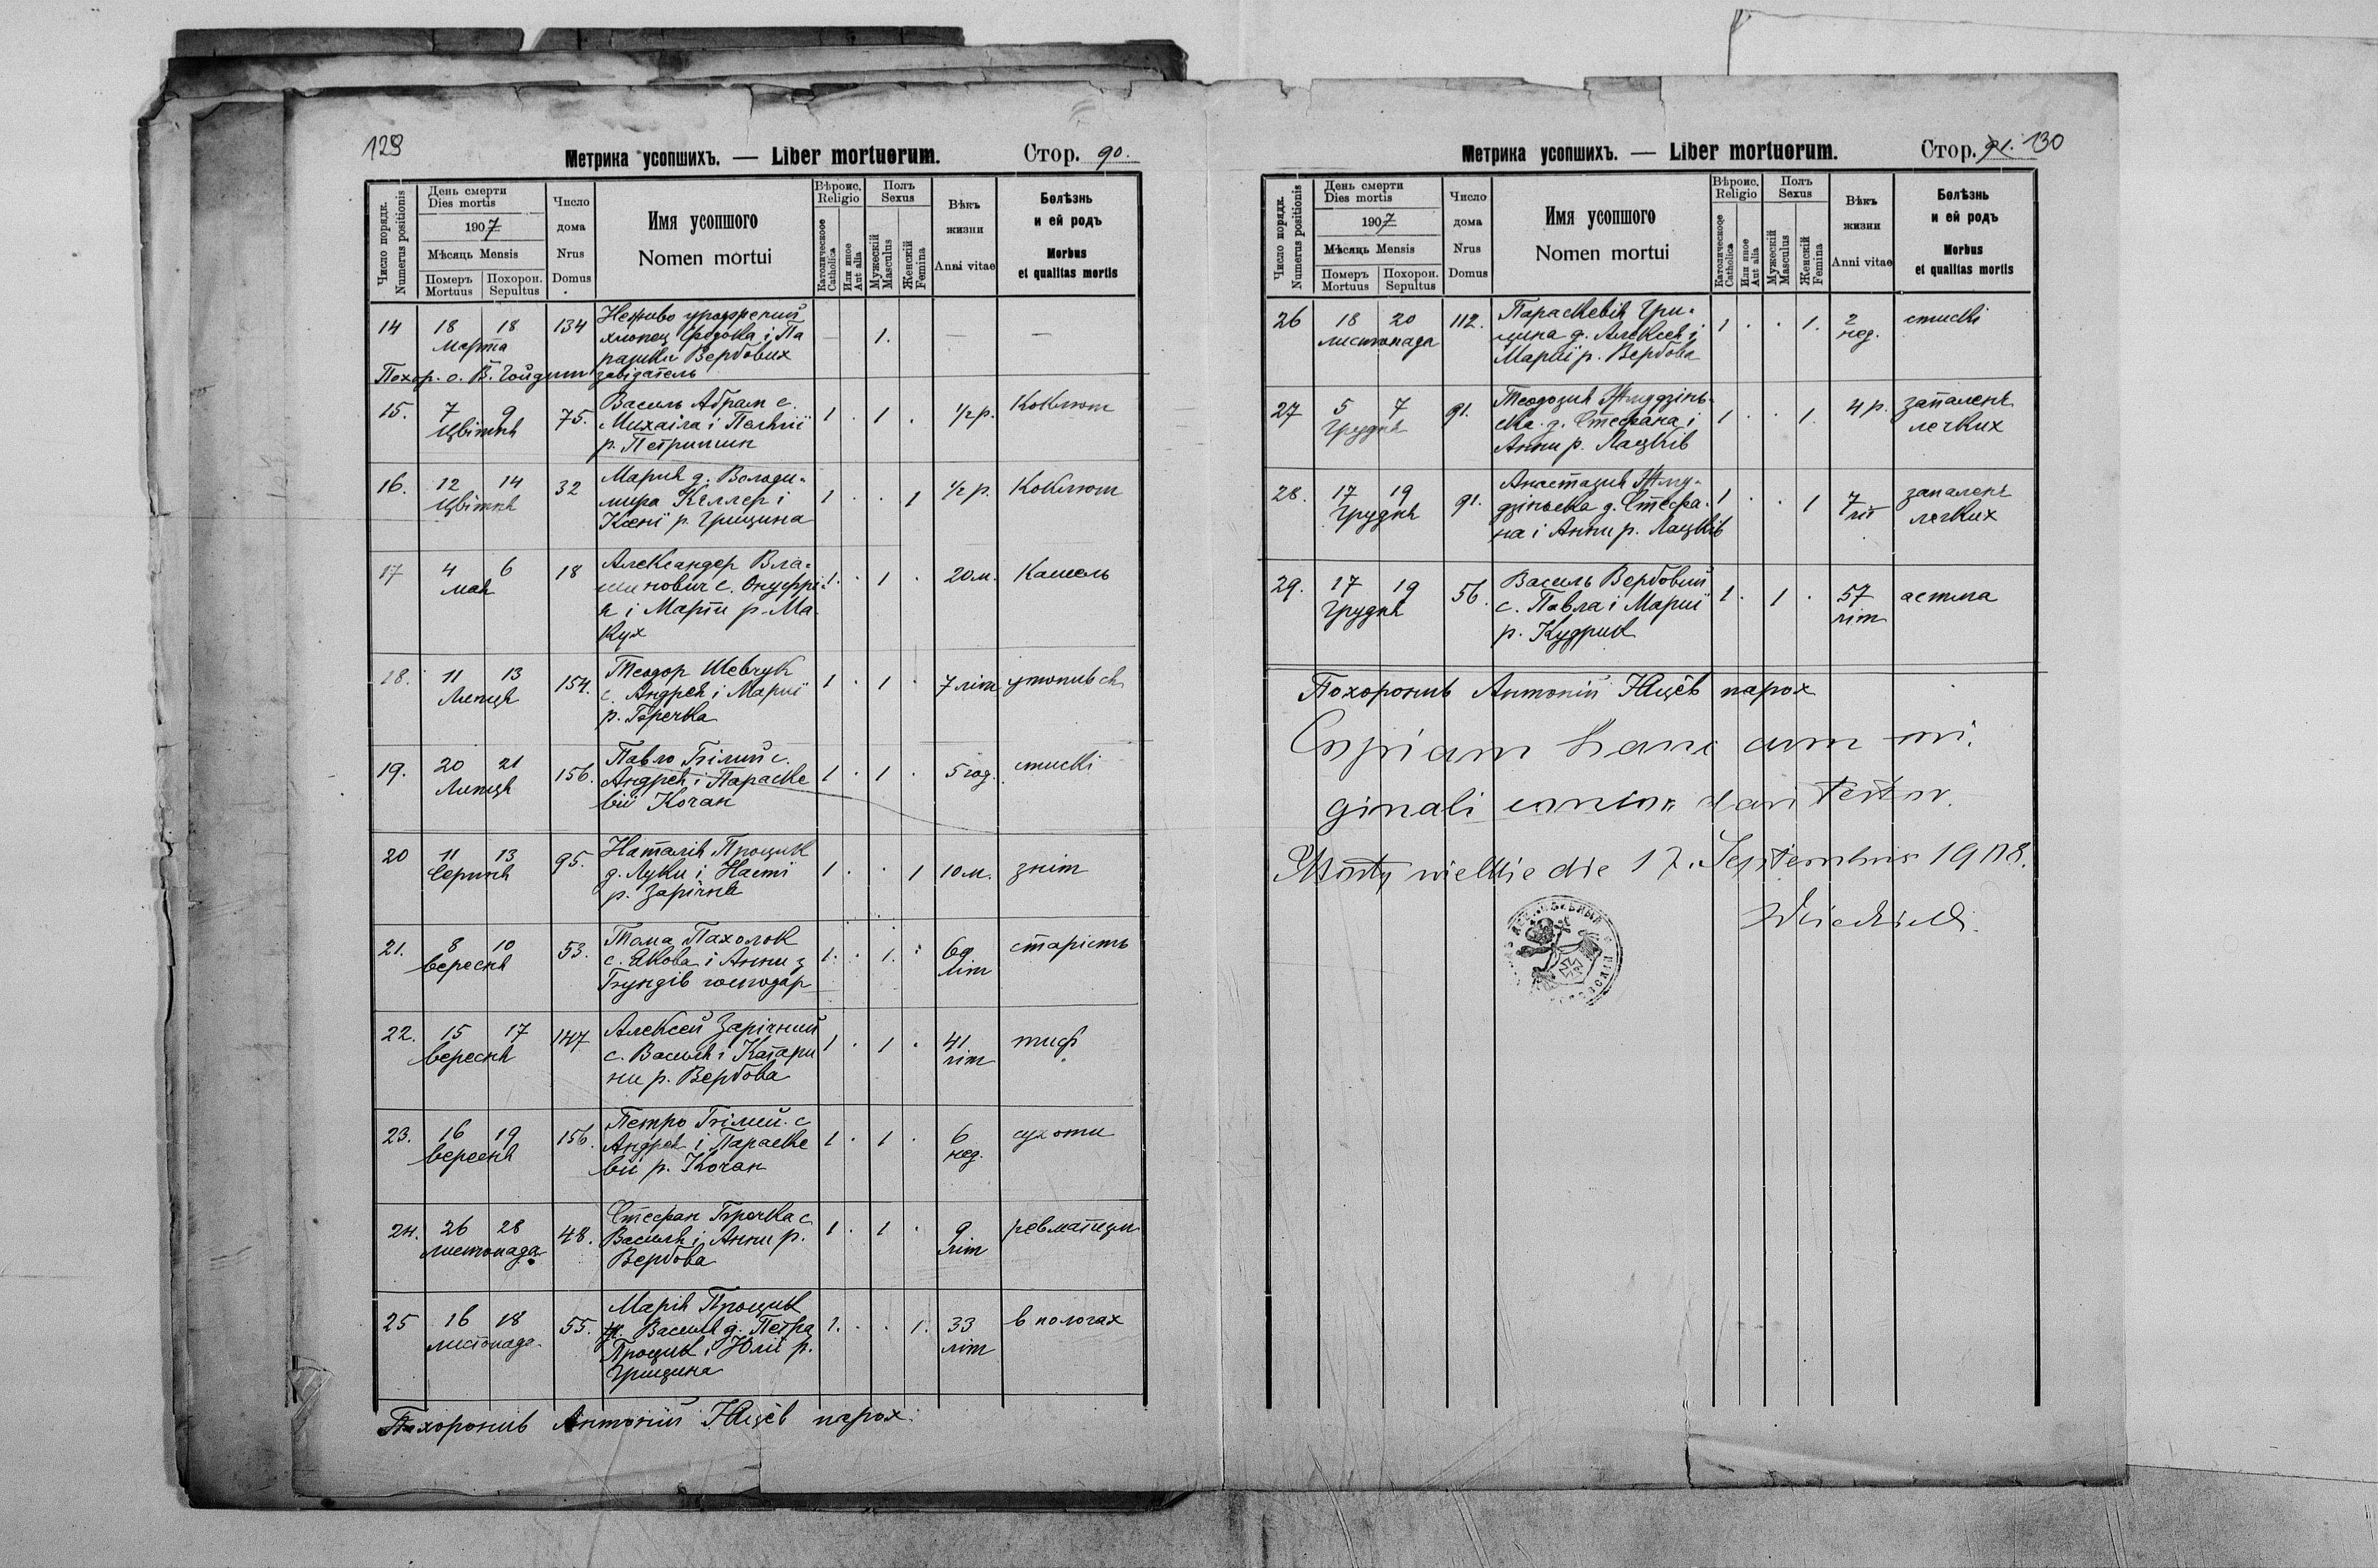 129
Метрика усопшихъ. — Liber mortuorum.
Стор. 90.
Число порядк.
Numerus positionis
День смерти
Dies mortis
1907
Мѣсяць Mensis
Померъ Mortuus
Похорон. Sepultus
Число дома
Nrus Domus
Имя усопшого
Nomen mortui
Вѣроис. Religio
Католическое Catholica
Или иное Aut alia
Полъ Sexus
Мужескій Masculus
Женскій Femina
Вѣкъ жизни
Anni vitae
Болѣзнь и ей родъ
Morbus et qualitas mortis
14 18 18 134 Неживо уроджений — 1. — —
марта хлопец Федока і Па
раньки Вербових
Похор. о. В. завідатель
15. 7 9 75. Василь Абрам с. 1 . 1 . 1/2 р. коклюш
цвітня Михаіла і Пелвії
р. Петришин
16. 12 14 32 Мария д. Володи- 1 . . 1 1/2 р. коклюш
цвітня мира Келлер і
Ксенї р. Грицина
17 4 6 18 Александер Вла- 1. . 1 . 20 м. кашель
мая шинович с. Онуфрі-
я і Марти р. Ма
кух
18. 11 13 154. Теодор Шевчук 1 . 1 . 7 літ утопивсь
Липця с. Андрея і Мариї
р. Гречка
19. 20 21 156. Павло Білий с. 1 . 1 . 5 год. стиски
Липця Андрея і Параске
вії Кочан
20 11 13 95. Наталія Процик 1 . . 1 10 м. зніт
Серпня д. Луки і Насті
р. Зарічна
21. 8 10 53. Тома Пахолок 1. . 1. . 69 старість
вересня с. Якова і Анни з літ
Бундів господар
22. 15 17 147 Алексей Зарічний 1 . 1 . 41 тиф
вересня с. Василя і Катари літ
ни р. Вербова
23. 16 19 156. Петро Білий с 1 . 1 . 6 сухоти
вересня Андрея і Параске нед.
вії р. Кочан
24. 26 28 48. Стефан Гречка с 1 . 1 . 9 ревматизм
листопада Василя і Анни р. літ
Вербова
25 16 18 55. Марія Процик 1. . . 1. 33 в пологах
листопада ж. Василя д. Петра літ
Процик і Юлії р.
Грицина
Похоронив Антоній парох
Метрика усопшихъ. — Liber mortuorum.
Стор. 91. 130
Число порядк.
Numerus positionis
День смерти
Dies mortis
1907
Мѣсяць Mensis
Померъ Mortuus
Похорон. Sepultus
Число дома
Nrus Domus
Имя усопшого
Nomen mortui
Вѣроис. Religio
Католическое Catholica
Или иное Aut alia
Полъ Sexus
Мужескій Masculus
Женскій Femina
Вѣкъ жизни
Anni vitae
Болѣзнь и ей родъ
Morbus et qualitas mortis
26 18 20 112. Параскевія Гри- 1 . . 1. 2 стиски
листопада цина д. Алексея і нед.
Мариї р. Вербова
27 5 7 91. Теодозия Жмудзінь- 1 . . 1. 4 р. запалень
Грудня ска д. Стефана і легких
Анни р. Лацьків
28. 17 19 91. Анастазия Жму- 1 . . 1 7 запалень
Грудня дзіньска д. Стефа- літ легких
на і Анни р. Лацьків
29. 17 19 56. Василь Вербовий 1 . 1 . 57 астма
Грудня с. Павла і Мариї літ
р. Кудрик
Похоронив Антоній парох
Copiam hanc cum ori-
ginali testor.
Mosty wielkie die 17. Septembris 1908.